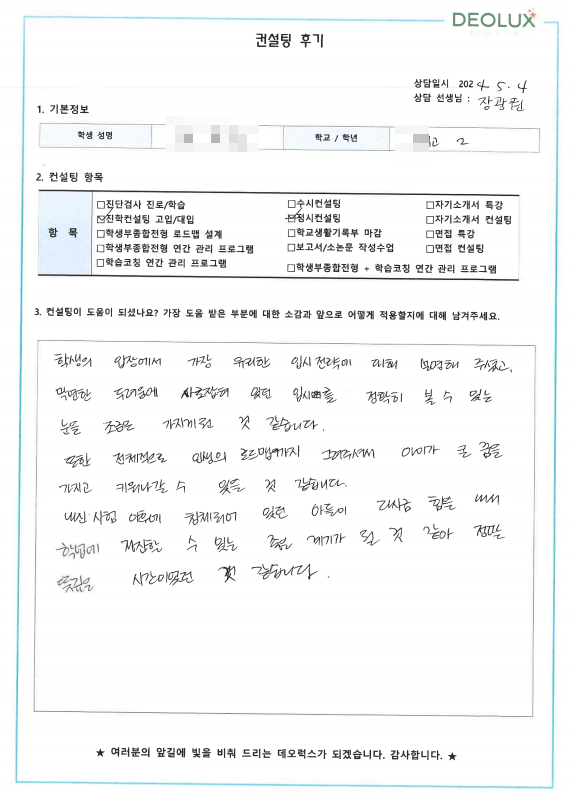 DEOLUX
컨설팅 후기
상담일시 2024. 5. 4
상담 선생님 : 장광원
1. 기본정보
학생 성명 학교 / 학년 고 2
2. 컨설팅 항목
항 목
□진단검사 진로/학습 □수시컨설팅 □자기소개서 특강
☑진학컨설팅 고입/대입 ☑정시컨설팅 □자기소개서 컨설팅
□학생부종합전형 로드맵 설계 □학교생활기록부 마감 □면접 특강
□학생부종합전형 연간 관리 프로그램 □보고서/소논문 작성수업 □면접 컨설팅
□학습코칭 연간 관리 프로그램 □학생부종합전형 + 학습코칭 연간 관리 프로그램
3. 컨설팅이 도움이 되셨나요? 가장 도움 받은 부분에 대한 소감과 앞으로 어떻게 적용할지에 대해 남겨주세요.
학생의 입장에서 가장 유리한 입시전략에 대해 설명해 주셨고,
막연한 두려움에 사로잡혀 있던 입시를 정확히 볼 수 있는
눈을 조금은 가지게 된 것 같습니다.
또한 전체적으로 인생의 로드맵까지 그려주셔서 아이가 큰 꿈을
가지고 키워나갈 수 있을 것 같습니다.
내신 시험 이후에 침체되어 있던 아들이 다시금 힘을 내서
학업에 정진할 수 있는 좋은 계기가 될 것 같아 정말
뜻깊은 시간이었던 것 같습니다.
★ 여러분의 앞길에 빛을 비춰 드리는 데오럭스가 되겠습니다. 감사합니다. ★